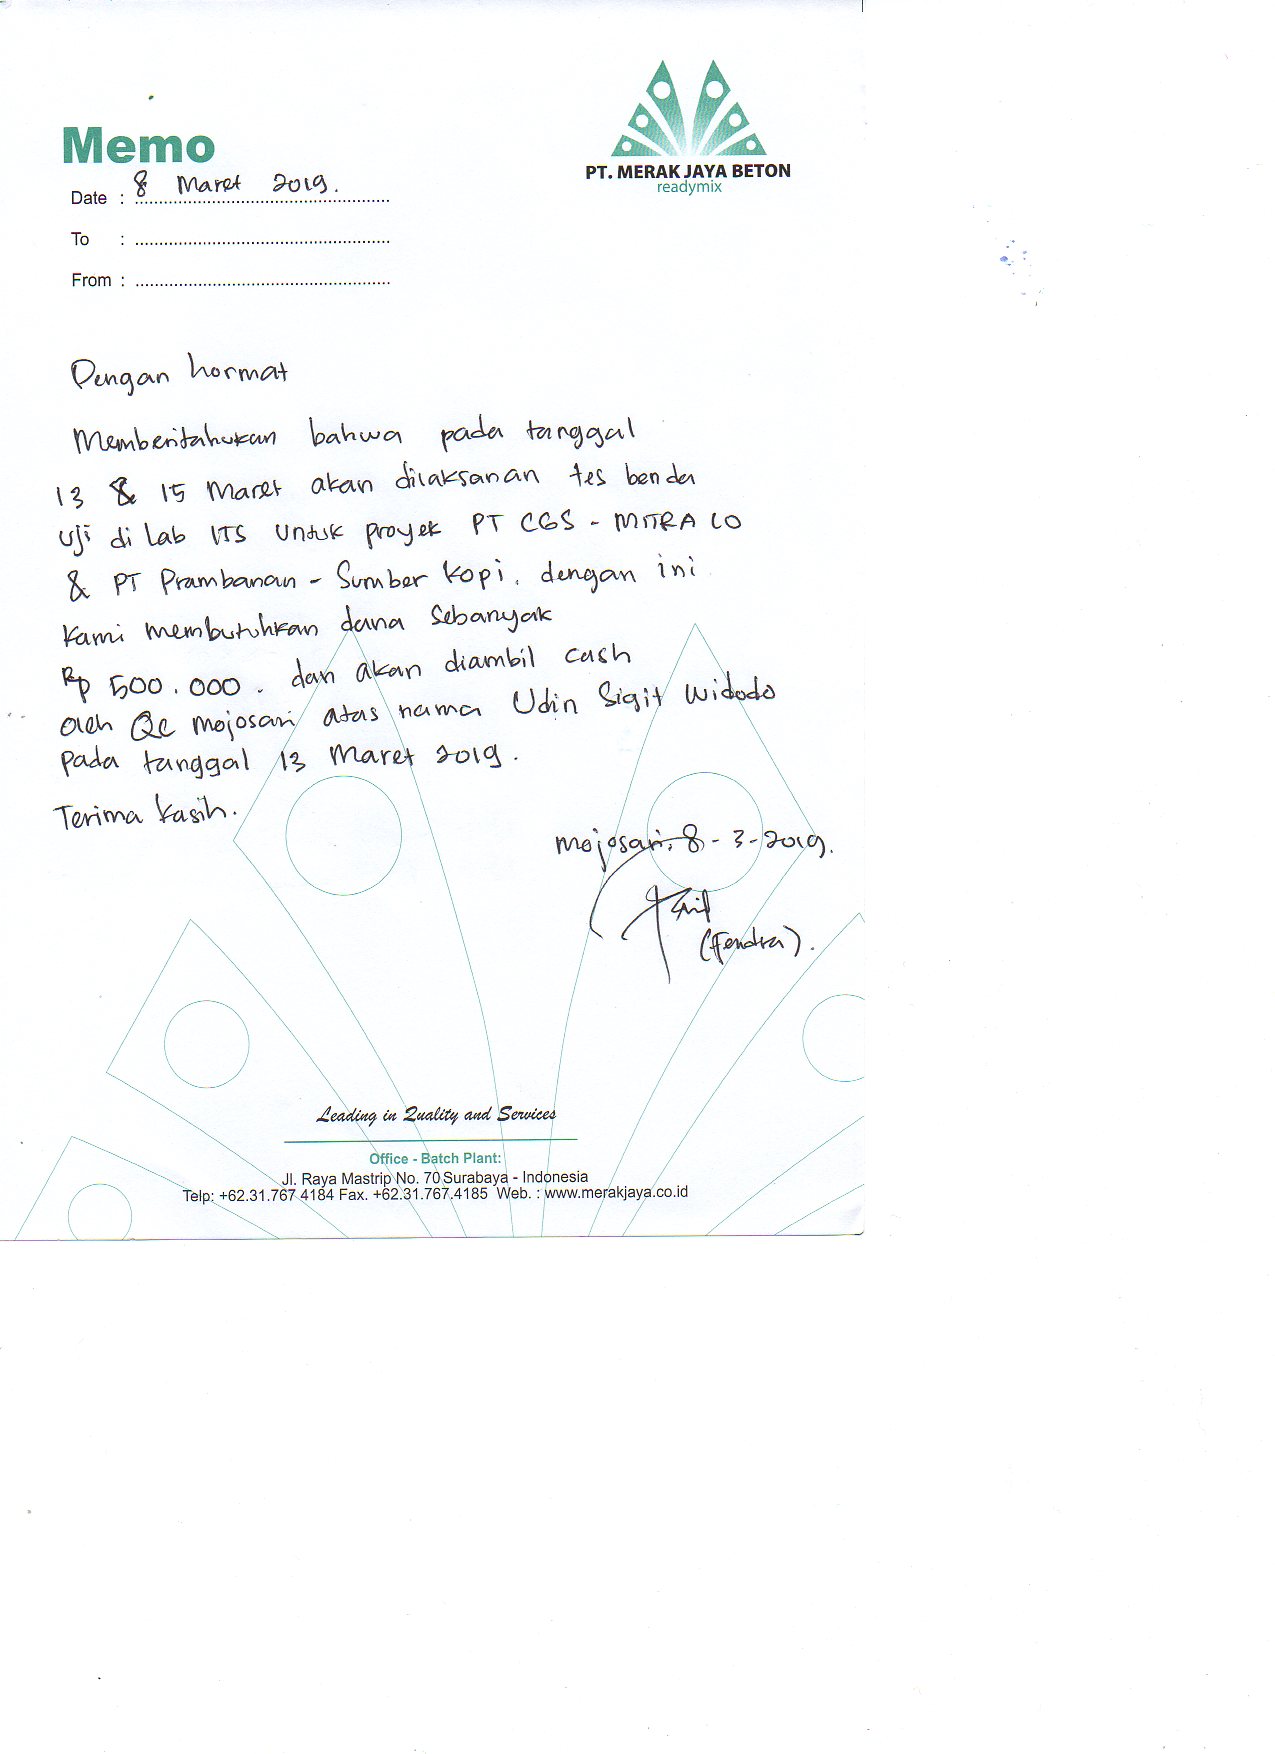 Memo
PT. MERAK JAYA BETON
readymix
Date : 8 Maret 2019.
To :
From :
Dengan hormat
Memberitahukan bahwa pada tanggal
13 & 15 Maret akan dilaksanan tes benda
uji di Lab ITS untuk proyek PT CGS - MITRA LO
& PT Prambanan - Sumber Kopi. dengan ini
kami membutuhkan dana sebanyak
Rp 500.000. dan akan diambil cash
oleh QC Mojosari atas nama Udin Sigit Widodo
pada tanggal 13 Maret 2019.
Terima kasih.
Mojosari, 8-3-2019.
(Fendra).
Leading in Quality and Services
Office - Batch Plant:
Jl. Raya Mastrip No. 70 Surabaya - Indonesia
Telp: +62.31.767 4184 Fax. +62.31.767.4185 Web. : www.merakjaya.co.id